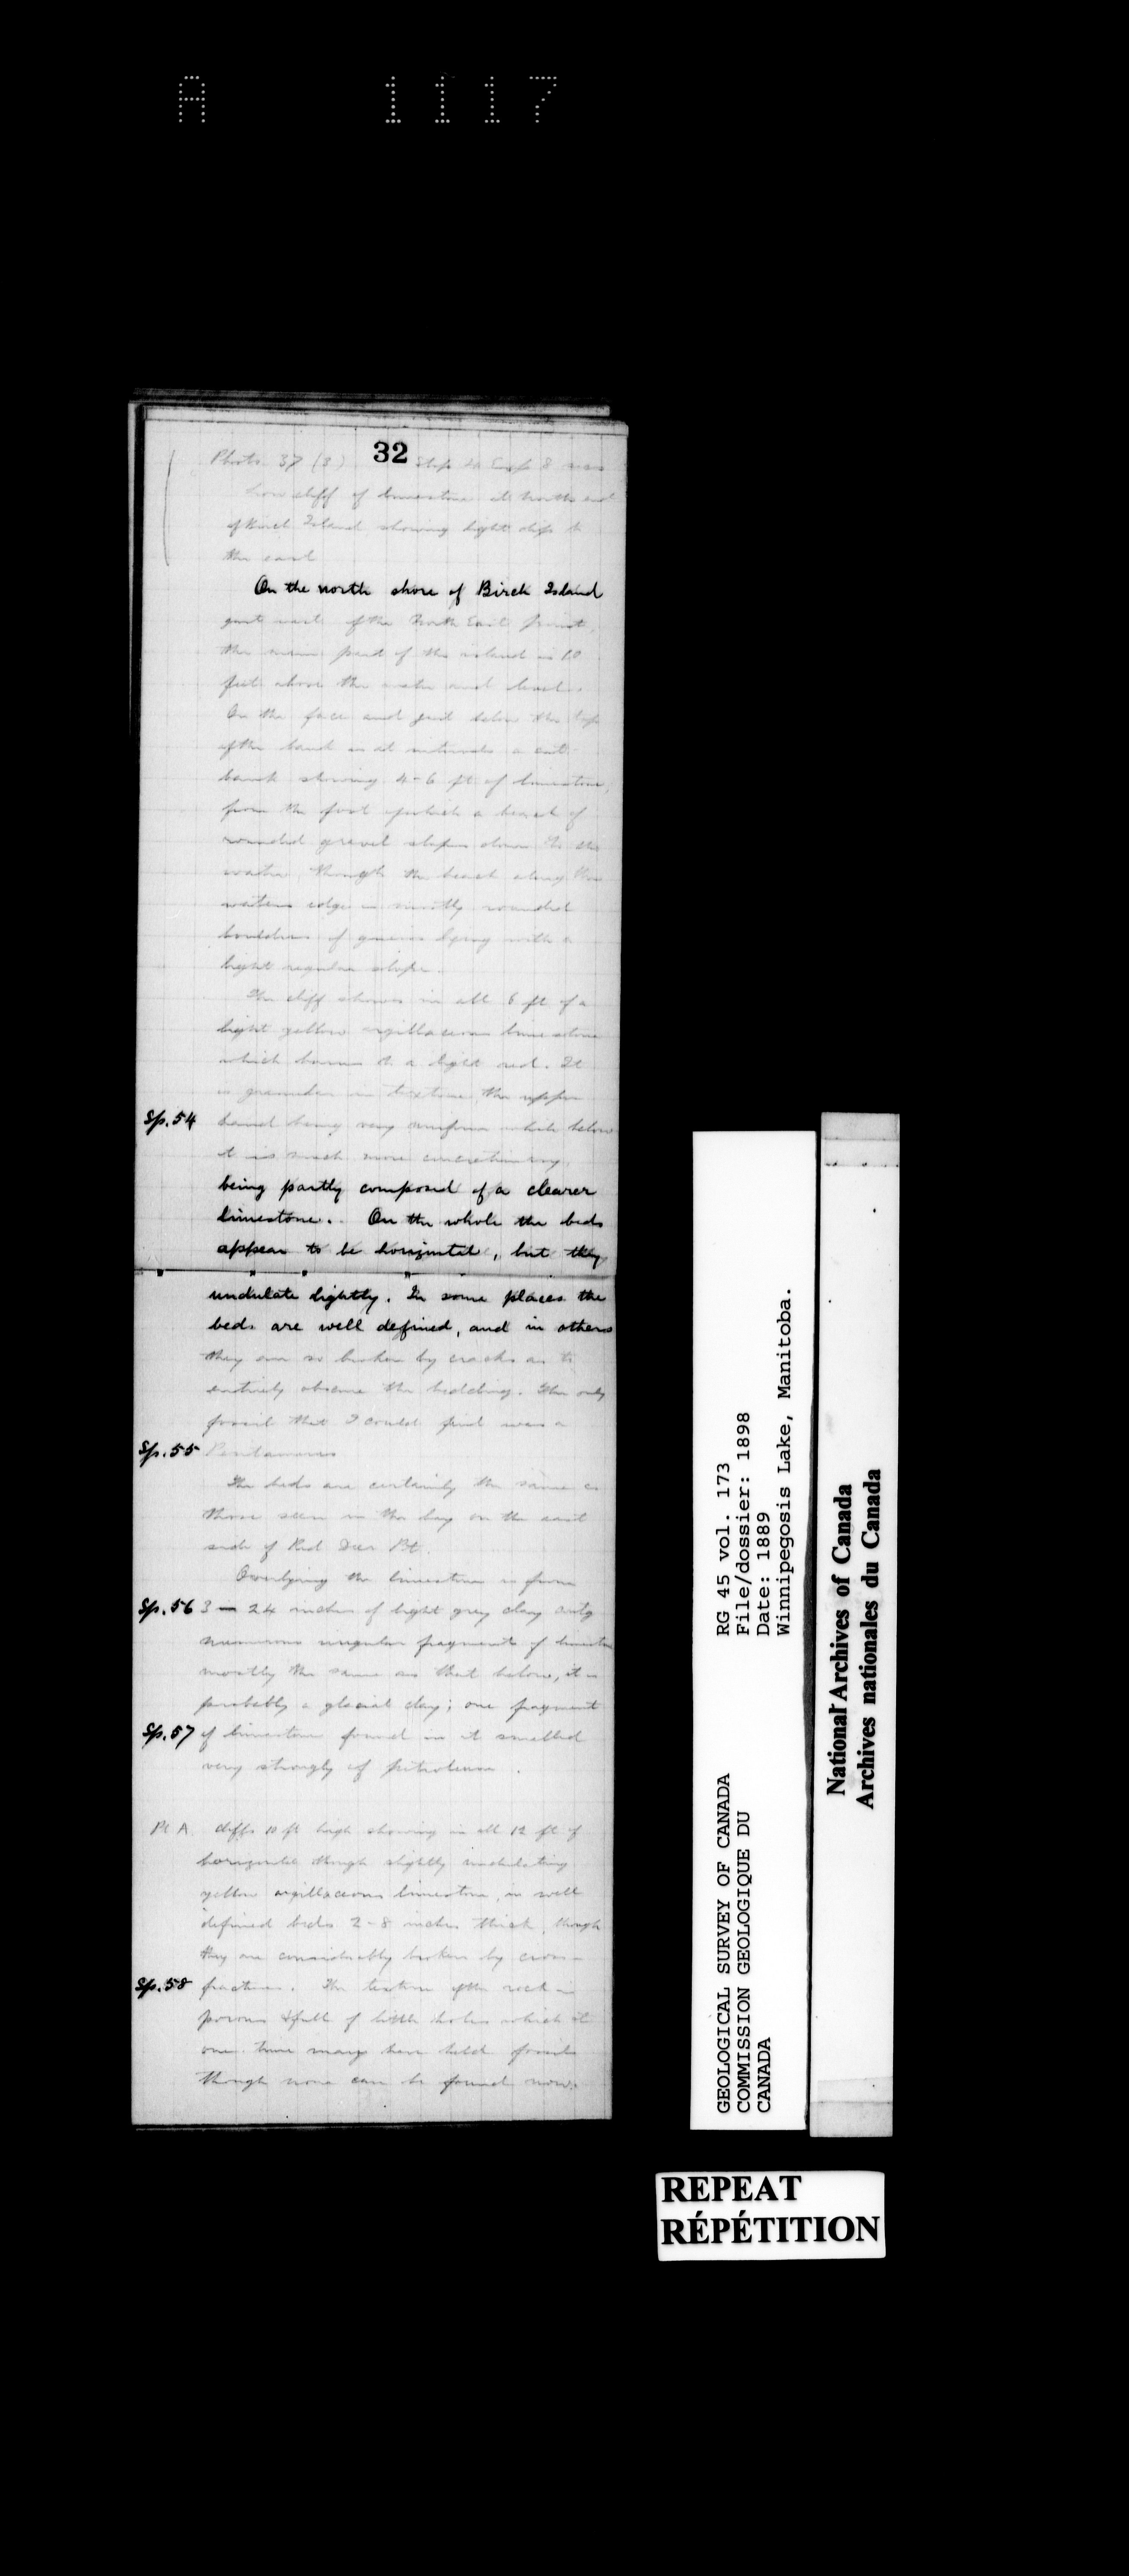 A 1117
32
Photo 37 (3) Stop 20 Exp 8 sec
Low cliff of limestone at North end
of Birch Island showing light dip to
the east
On the north shore of Birch Island
just west of the North East point,
the main part of the island is 10
feet above the water and level.
On the face and just below the top
of the land is at intervals a cut-
bank showing 4-6 ft of limestone,
from the foot of which a beach of
rounded gravel slopes down to the
water, though the beach along the
waters edge is mostly rounded
boulders of gneiss lying with a
light regular slope.
The cliff shows in all 6 ft of a
light yellow argillaceous limestone
which burns to a light red. It
is granular in texture, the upper
Sp. 54 band being very uniform while below
it is much more concretionary,
being partly composed of a clearer
limestone. On the whole the beds
appear to be horizontal, but they
undulate lightly. In some places the
beds are well defined, and in others
they are so broken by cracks as to
entirely obscure the bedding. The only
fossil that I could find was a
Sp. 55 Pentamerus
The beds are certainly the same as
those seen in the bay on the east
side of Red Deer Pt.
Overlying the limestone is from
Sp. 56 3 — 24 inches of light grey clay
numerous angular fragments of limestone
mostly the same as that below, it is
probably a glacial clay; one fragment
Sp. 57 of limestone found in it smelled
very strongly of petroleum.
Pt A. Cliffs 10 ft high showing in all 12 ft of
horizontal though slightly undulating
yellow argillaceous limestone, in well
defined beds 2-8 inches thick, though
they are considerably broken by cross-
Sp. 58 fractures. The texture of the rock is
porous & full of little holes which at
one time may have held fossils
though none can be found now.
GEOLOGICAL SURVEY OF CANADA
COMMISSION GEOLOGIQUE DU
CANADA
RG 45 vol. 173
File/dossier: 1898
Date: 1889
Winnipegosis Lake, Manitoba.
National Archives of Canada
Archives nationales du Canada
REPEAT
RÉPÉTITION